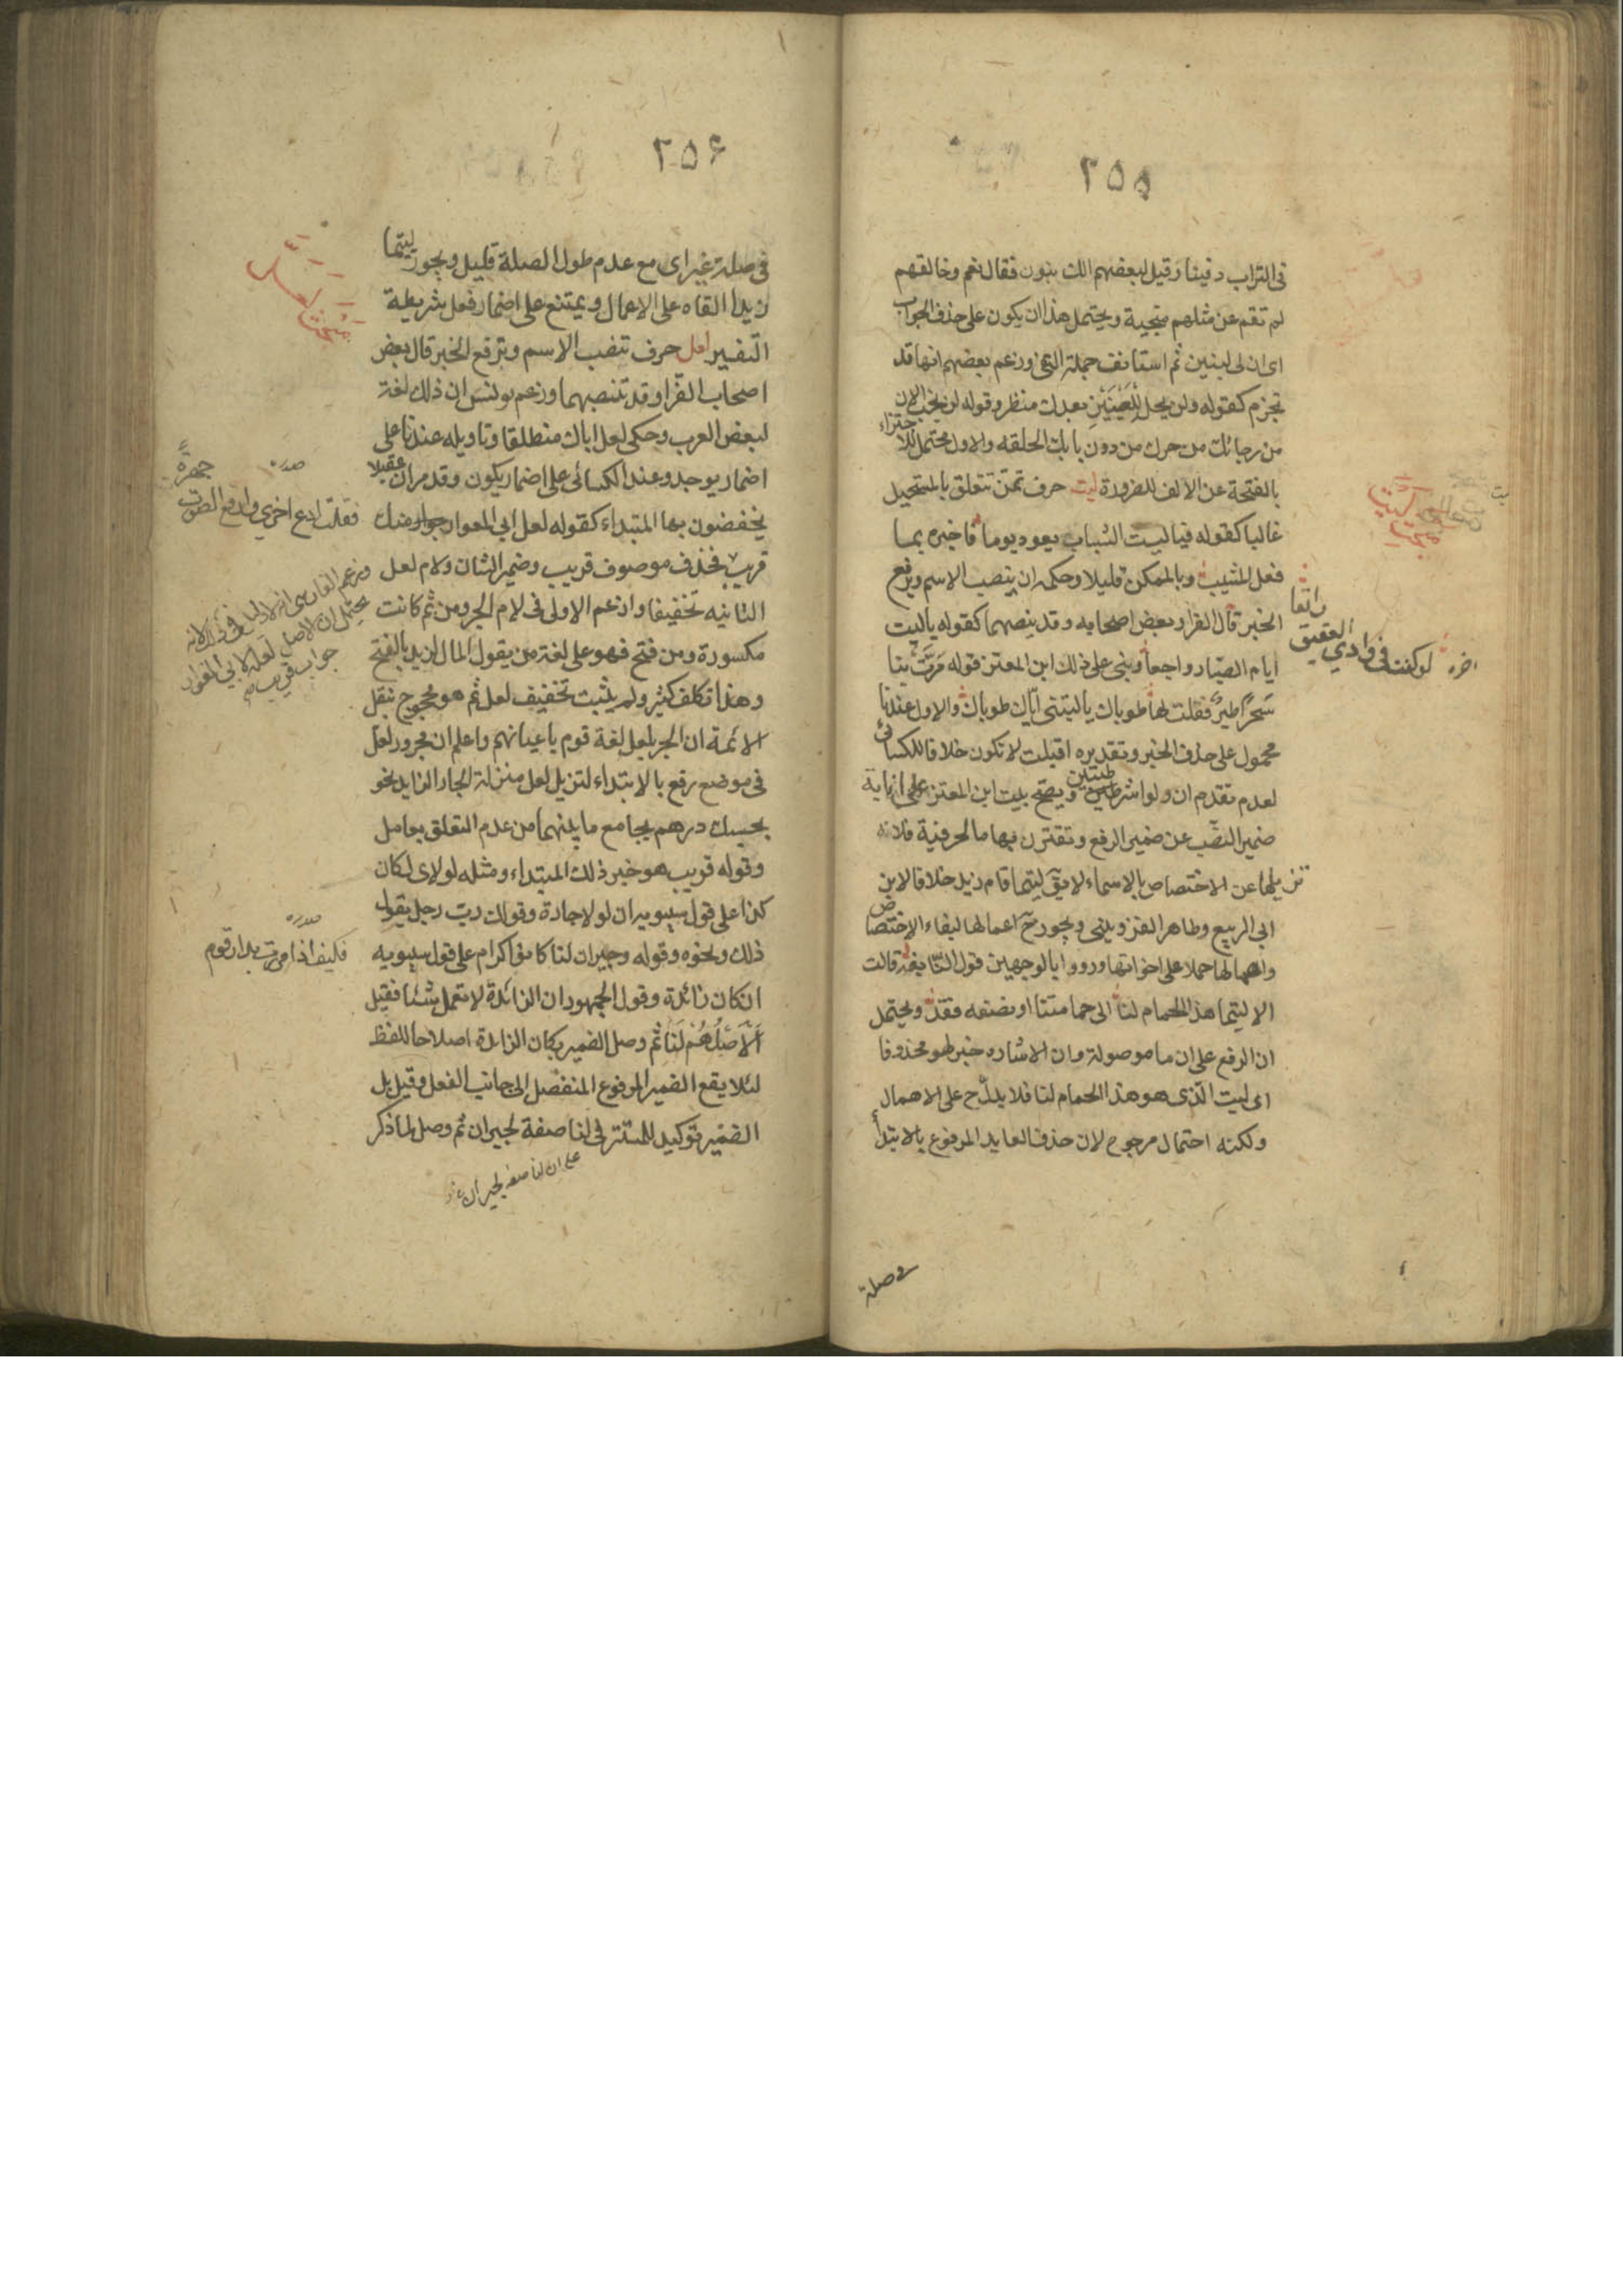 ٢٥٥
فى التراب دفينا وقيل لبعضهم الك بنون فقال نعم وخالقهم
لم تقم عن مثلهم منجبة ويحتمل هذا ان يكون على حذف الجواب
اى ان لى لبنين ثم استأنف جملة النفى وزعم بعضهم انها قد
تجزم كقوله ولن يحل للعينين بعدك منظر وقوله لن يخب الان
من رجائك من حرك من دون بابك الحلقه والاول محتمل للاجتزاء
بالفتحة عن الالف للضرورة ليت حرف تمنّ تتعلق بالمستحيل
غالبا كقوله فيا ليت الشباب يعود يوما فاخبره بما
فعل المشيب وبالممكن قليلا وحكمه ان ينصب الاسم ويرفع
الخبر قال الفرا وبعض اصحابه وقد ينصبهما كقوله ياليت
ايام الصبا رواجعا وبنى على ذلك ابن المعتز قوله مرّت بنا
سَحَرًا طيرٌ فقلت لها طوباك ياليتنى ايّاك طوباك والاول عندنا
محمول على حذف الخبر وتقديره اقبلت لا تكون خلافا للكسائى
لعدم تقدم ان ولو الشرطيتين ويصح بيت ابن المعتز على انابة
ضمير النصب عن ضمير الرفع وتقترن بها ما الحرفية فلا
تزيلها عن الاختصاص بالاسماء لا يقٓ ليتما قام زيد خلافا لابن
ابى الربيع وطاهر القزوينى ويجوز حٓ اعمالها لبقاء الاختصاص
واهمالها حملا على اخواتها ورووا بالوجهين قول النّابغة قالت
الا ليتما هذا الحمام لنا الى حمامتنا او نصفه فقد ويحتمل
ان الرفع على ان ما موصولة وان الاشاره خبر لهو محذوفا
اى ليت الّذى هو هذا الحمام لنا فلا يدلّ ح على الاهمال
ولكنه احتمال مرجوح لان حذف العايد المرفوع بالابتدأ
فى صلة
مبحث ليت
اخره لو كنت فى وادي العقيق راتعا
٢٥۶
فى صلة غير اى مع عدم طول الصلة قليل ويجوز ليتما
زيدا القاه على الاعمال ويمتنع على اضمار فعل بشريطة
التفسير لعل حرف تنصب الاسم وترفع الخبر قال بعض
اصحاب الفرّا وقد تنصبهما وزعم يونس ان ذلك لغة
لبعض العرب وحكى لعل اباك منطلقا وتاويله عندنا على
اضمار يوجد وعند الكسائى على اضمار يكون وقد مر ان عقيلا
يخفضون بها المتبداء كقوله لعل ابى المعوار منك
قريب فحذف موصوف قريب وضمير الشان ولام لعل
الثانيه تخفيفا وادغم الاولى فى لام الجر ومن ثم كانت
مكسورة ومن فتح فهو على لغة من يقول المال لزيد بالفتح
وهذا تكلف كثير ولم يثبت تخفيف لعل ثم هو محجوج بنقل
الائمة ان الجر بلعل لغة قوم باعيانهم واعلم ان مجرور لعل
فى موضع رفع بالابتداء لتنزيل لعل منزلة الجار الزايد نحو
بحسبك درهم بجامع ما بينهما من عدم التعلق بعامل
وقوله قريب هو خبر ذلك المبتداء ومثله لولاى لكان
كذا على قول سيبويه ان لولا جارة وقولك ربّ رجل يقول
ذلك ونحوه وقوله وجيران لنا كانوا كرام على قول سيبويه
ان كان زائدة وقول الجمهور ان الزائدة لا تعمل شئا فقيل
اَلْاَصْلُ هُمْ لَنَا ثم وصل الضمير بكان الزايدة اصلاحا للفظ
لئلا يقع الضمير المرفوع المنفصل الى جانب الفعل وقيل بل
الضمير توكيد للمستتر فى لنا صفة لجيران ثم وصل لما ذكر
على ان لنا صفه لجيران
مبحث لعل
صدره
فقلت ادع اخري وارفع الصوت جهرةً
وزعم الفارسى انه لا دليل فى ذلك لانه
يحتمل ان الاصل لعله لابى المغوار
جواب قريب
صدره
فكيف اذا مررت بدار قوم